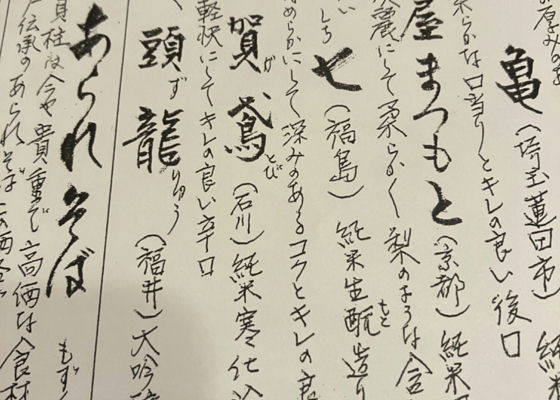 亀(埼玉蓮田市)純
柔らかな口当りとキレの良い後口
屋まつもと(京都)純米
麗にして柔らかく梨のような含
七(福島)純米生酛造り
しち
もと
めらかにして深みのあるコクとキレの良
賀鳶(石川)純米寒仕込
が とび
軽快にしてキレの良い辛口
頭龍(福井)大吟醸
ず りゅう
あられそば
もずく
貝柱は今や貴重で高価な食材
伝承のあられそば この時